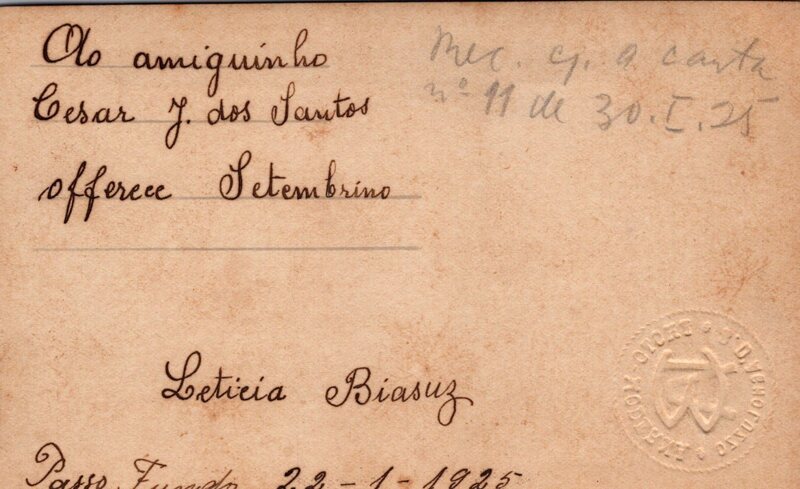 Ao amiguinho
Cesar J. dos Santos
offerece Setembrino
Rec. cj. a carta
nº 11 de 30.I.25
Leticia Biasuz
Passo Fundo 22-1-1925